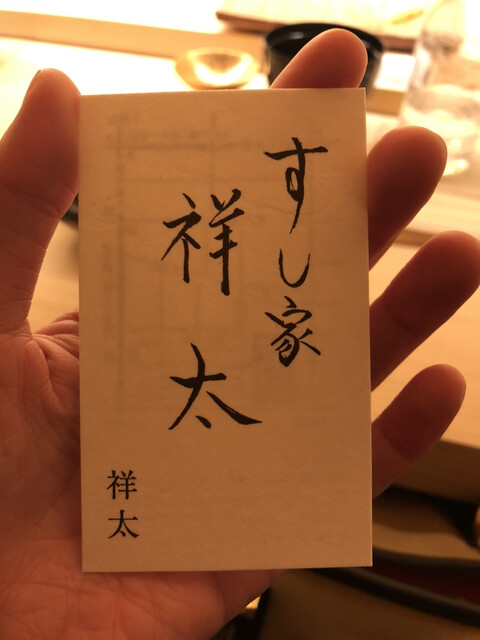 すし家
祥太
祥太